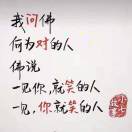 我问佛
何为对的人
佛说
一见你,就笑的人
一见,你就笑的人
小七故事